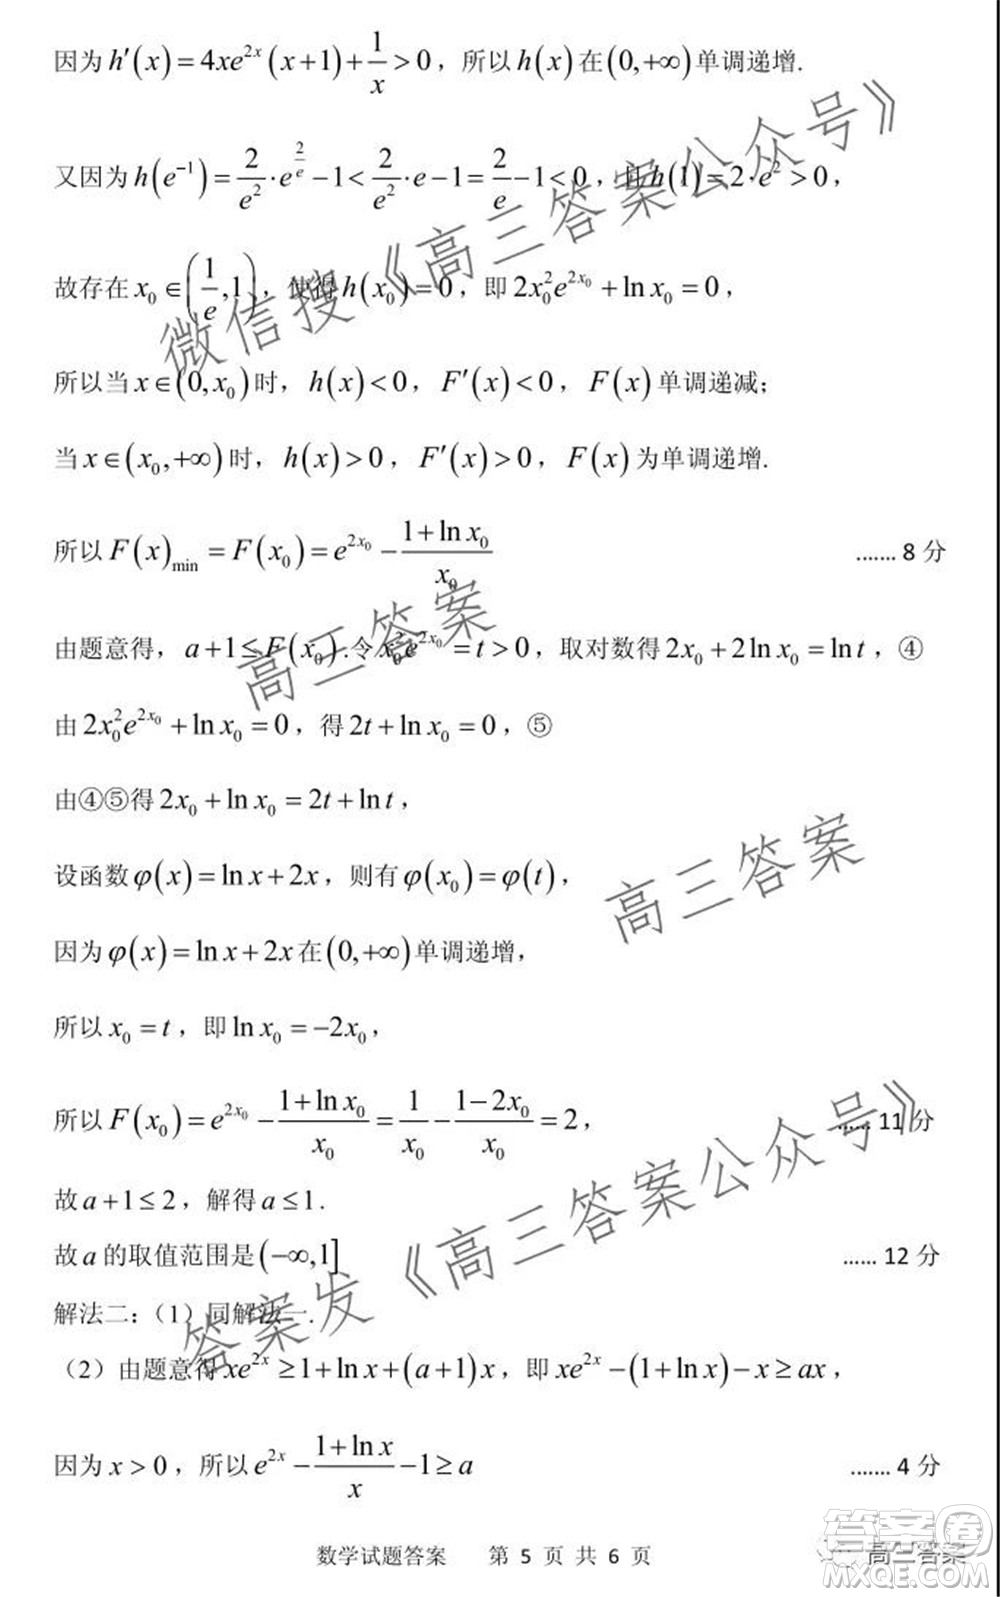 因为 h′(x)=4xe^{2x}(x+1)+\frac{1}{x}>0，所以 h(x)在(0,+∞)单调递增.
又因为 h(e^{-1})=\frac{2}{e^2}·e^{\frac{2}{e}}-1<\frac{2}{e^2}·e-1=\frac{2}{e}-1<0，且h(1)=2·e^2>0，
故存在 x_0∈(\frac{1}{e},1)，使得h(x_0)=0，即 2x_0^2e^{2x_0}+ln x_0=0，
所以当 x∈(0,x_0)时，h(x)<0，F′(x)<0，F(x)单调递减；
当 x∈(x_0,+∞)时，h(x)>0，F′(x)>0，F(x)为单调递增.
所以 F(x)_{min}=F(x_0)=e^{2x_0}-\frac{1+ln x_0}{x_0} ....... 8 分
由题意得，a+1≤F(x_0).令x_0^2e^{2x_0}=t>0，取对数得 2x_0+2ln x_0=ln t，④
由 2x_0^2e^{2x_0}+ln x_0=0，得 2t+ln x_0=0，⑤
由④⑤得 2x_0+ln x_0=2t+ln t，
设函数φ(x)=ln x+2x，则有φ(x_0)=φ(t)，
因为φ(x)=ln x+2x在(0,+∞)单调递增，
所以 x_0=t，即 ln x_0=-2x_0，
所以 F(x_0)=e^{2x_0}-\frac{1+ln x_0}{x_0}=\frac{1}{x_0}-\frac{1-2x_0}{x_0}=2， ...... 11 分
故 a+1≤2，解得 a≤1.
故 a 的取值范围是(-∞,1] ...... 12 分
解法二：（1）同解法一.
（2）由题意得 xe^{2x}≥1+ln x+(a+1)x，即 xe^{2x}-(1+ln x)-x≥ax，
因为 x>0，所以 e^{2x}-\frac{1+ln x}{x}-1≥a ....... 4 分
数学试题答案 第 5 页 共 6 页
微信搜《高三答案公众号》
高三答案
高三答案
答案发《高三答案公众号》
高三答案
答案圈
MXQE.COM